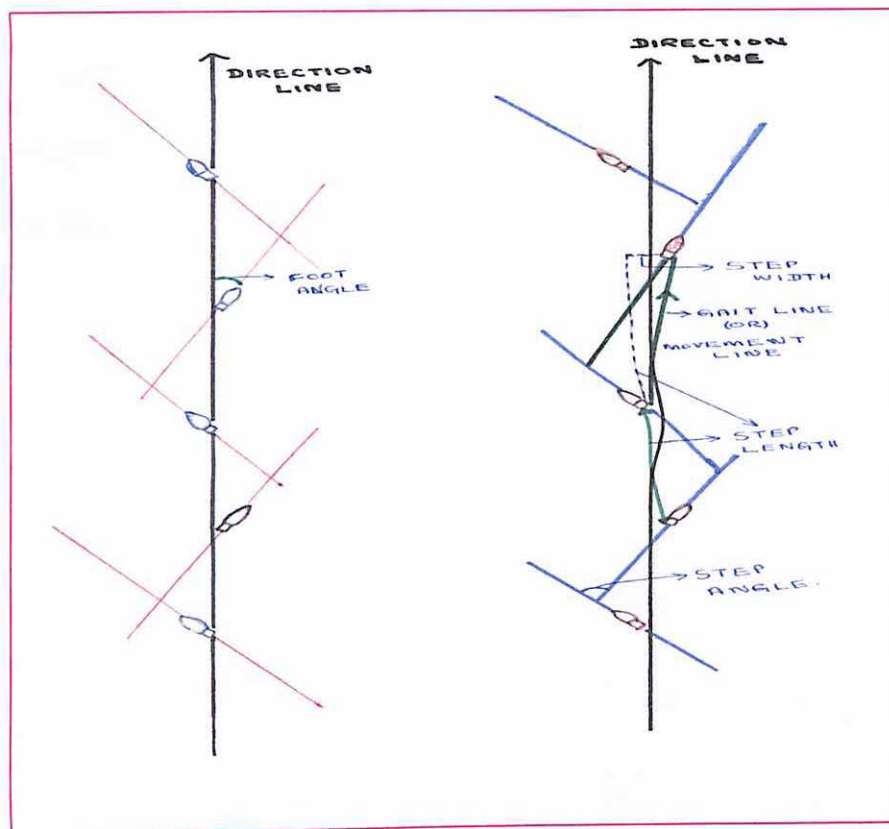 DIRECTION
LINE
FOOT
ANGLE
DIRECTION
LINE
STEP
WIDTH
GAIT LINE
(OR)
MOVEMENT
LINE
STEP
LENGTH
STEP
ANGLE.